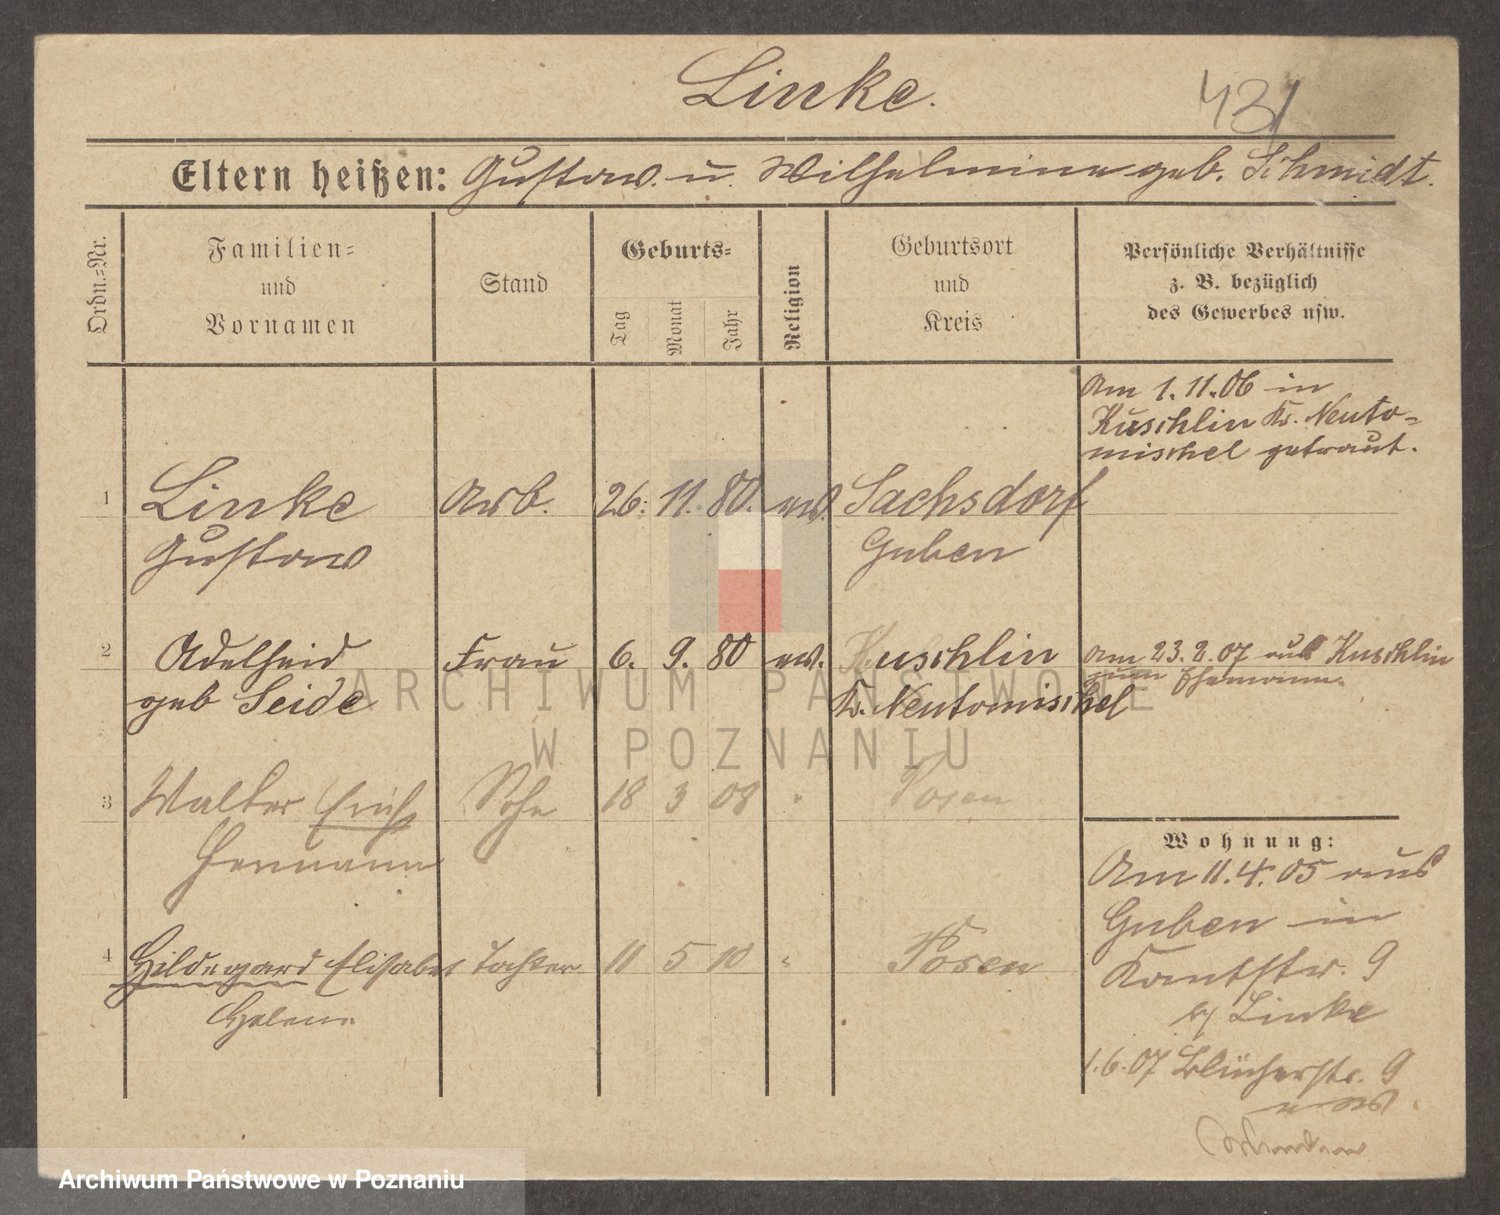 Linke.
431
Eltern heißen: Gustav. u. Wilhelmine geb. Schmidt.
Ordn.-Nr.
Familien-
und
Vornamen
Stand
Geburts-
Tag
Monat
Jahr
Religion
Geburtsort
und
Kreis
Persönliche Verhältnisse
z. B. bezüglich
des Gewerbes usw.
Am 1.11.06 in
Kuschlin Kr. Neuto-
mischel getraut.
1 Linke Arb. 26. 11. 80. ev. Sachsdorf
Gustav Guben
2 Adelheid Frau 6. 9. 80 ev. Kuschlin
geb Seide Kr. Neutomischel
am 23.2.07 aus Kuschlin
zum Ehemann.
3 Walter Erich Sohn 18 3 08 " Posen
Hermann
4 Hildegard Elisabet Tochter 11 5 10 " Posen
Helene
Wohnung:
Am 11.4.05 aus
Guben in
Kantstr. 9
b/ Linke
1.6.07 Blücherstr. 9
ARCHIWUM PAŃSTWOWE
W POZNANIU
Archiwum Państwowe w Poznaniu